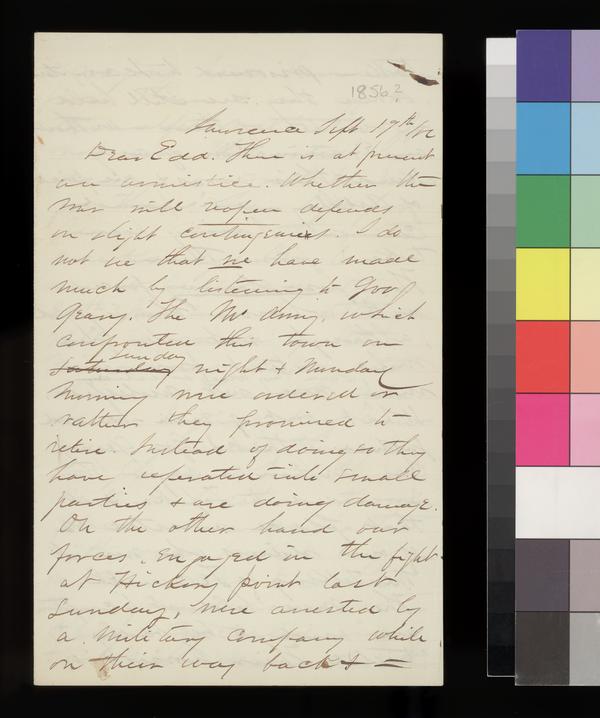 1856?
Lawrence Sept. 17th /56
Dear Edd. There is at present
an armistice. Whether the
war will reopen depends
on slight contingencies. I do
not see that we have made
much by listening to Gov
Geary. The Mo Army, which
confronted this town on
Saturday Sunday night & Monday
Morning were ordered or
rather they promised to
retire. Instead of doing so they
have seperated into small
parties & are doing damage.
On the other hand our
forces, engaged in the fight
at Hickory point last
Sunday, were arrested by
a Military Company while
on their way back & =